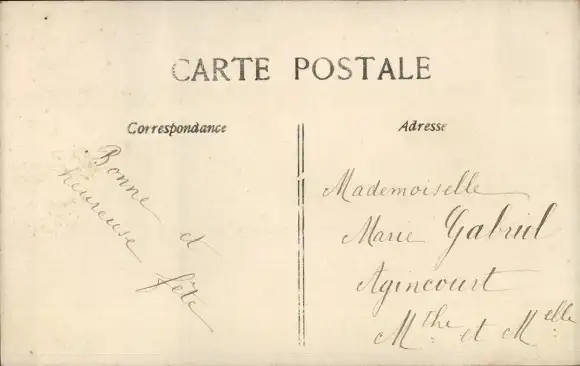 CARTE POSTALE
Correspondance
Bonne et
heureuse fête
Adresse
Mademoiselle
Marie Gabriel
Agincourt
Mthe et Melle